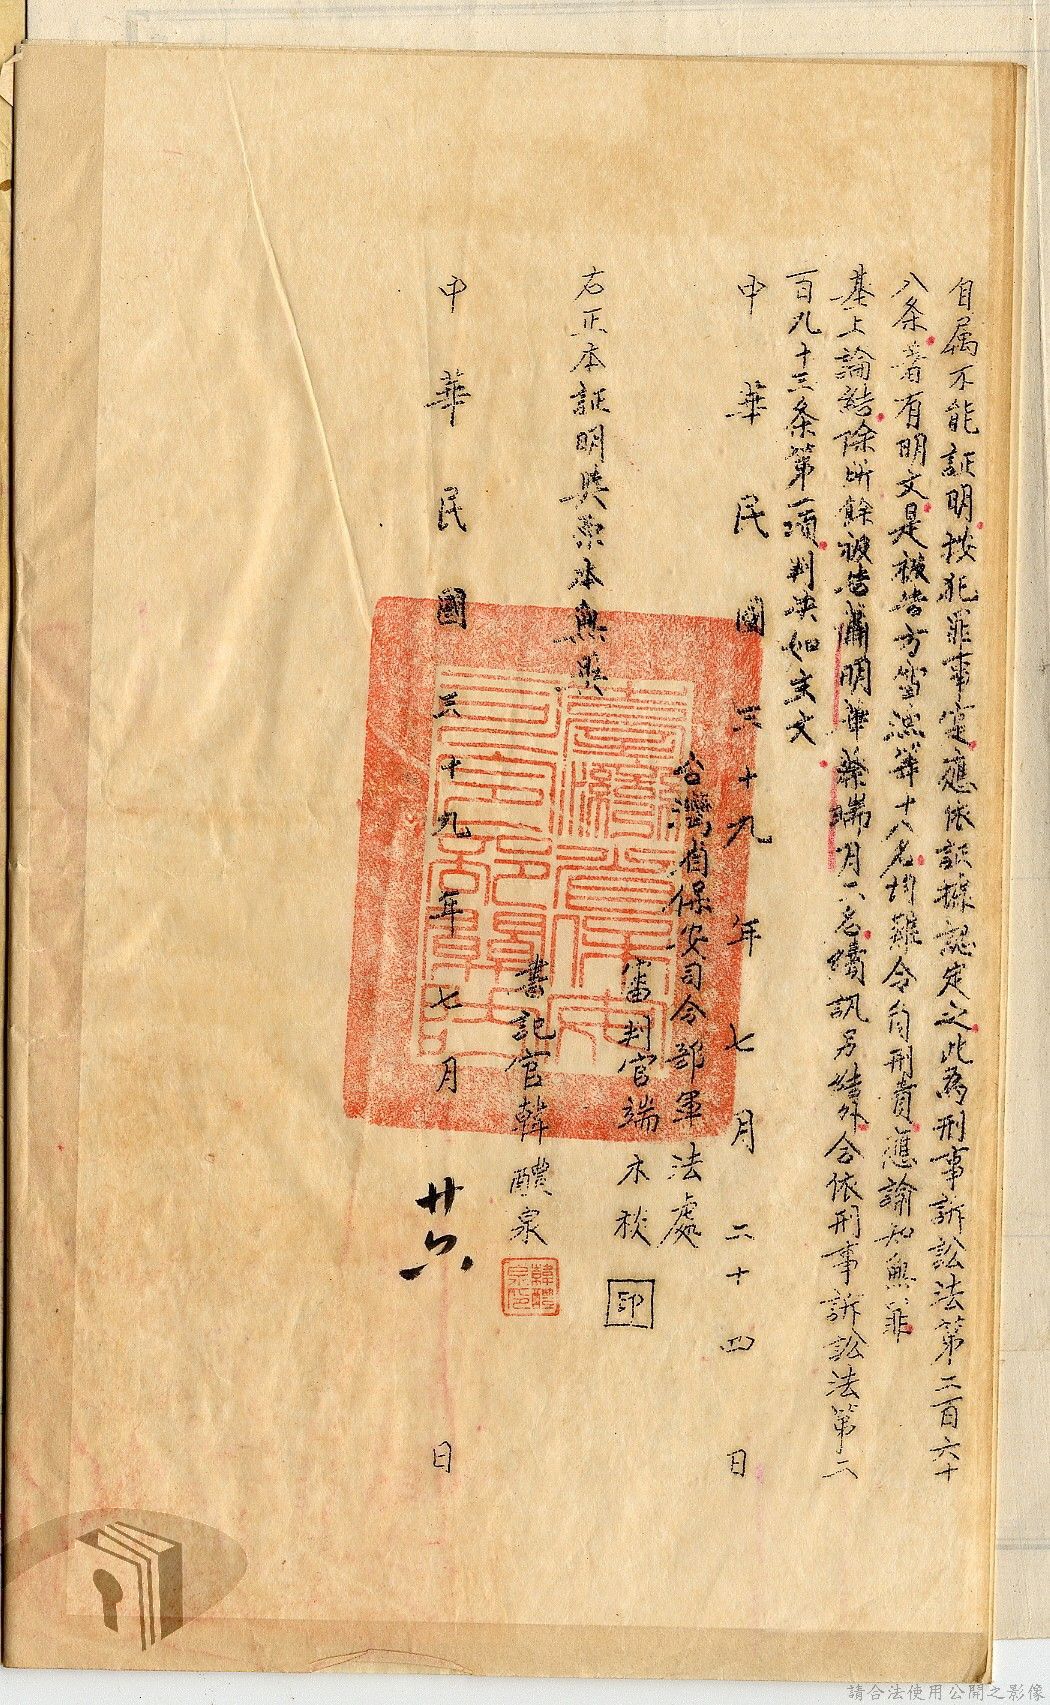 自属不能証明按犯罪事寔應依証據認定之此為刑事訴訟法第二百六十
八条著有明文是被告方等十八名均難令負刑責應諭知無罪
基上論結除所餘被告蕭明華蔡瑞月二名續訊另結外合依刑事訴訟法第二
百九十三条第一項判决如主文
中華民國三十九年七月二十四日
台灣省保安司令部軍法處
審判官端木棪
印
右正本証明與原本無異
書記官韓醴泉
中華民國三十九年七月廿六日
請合法使用公開之影像